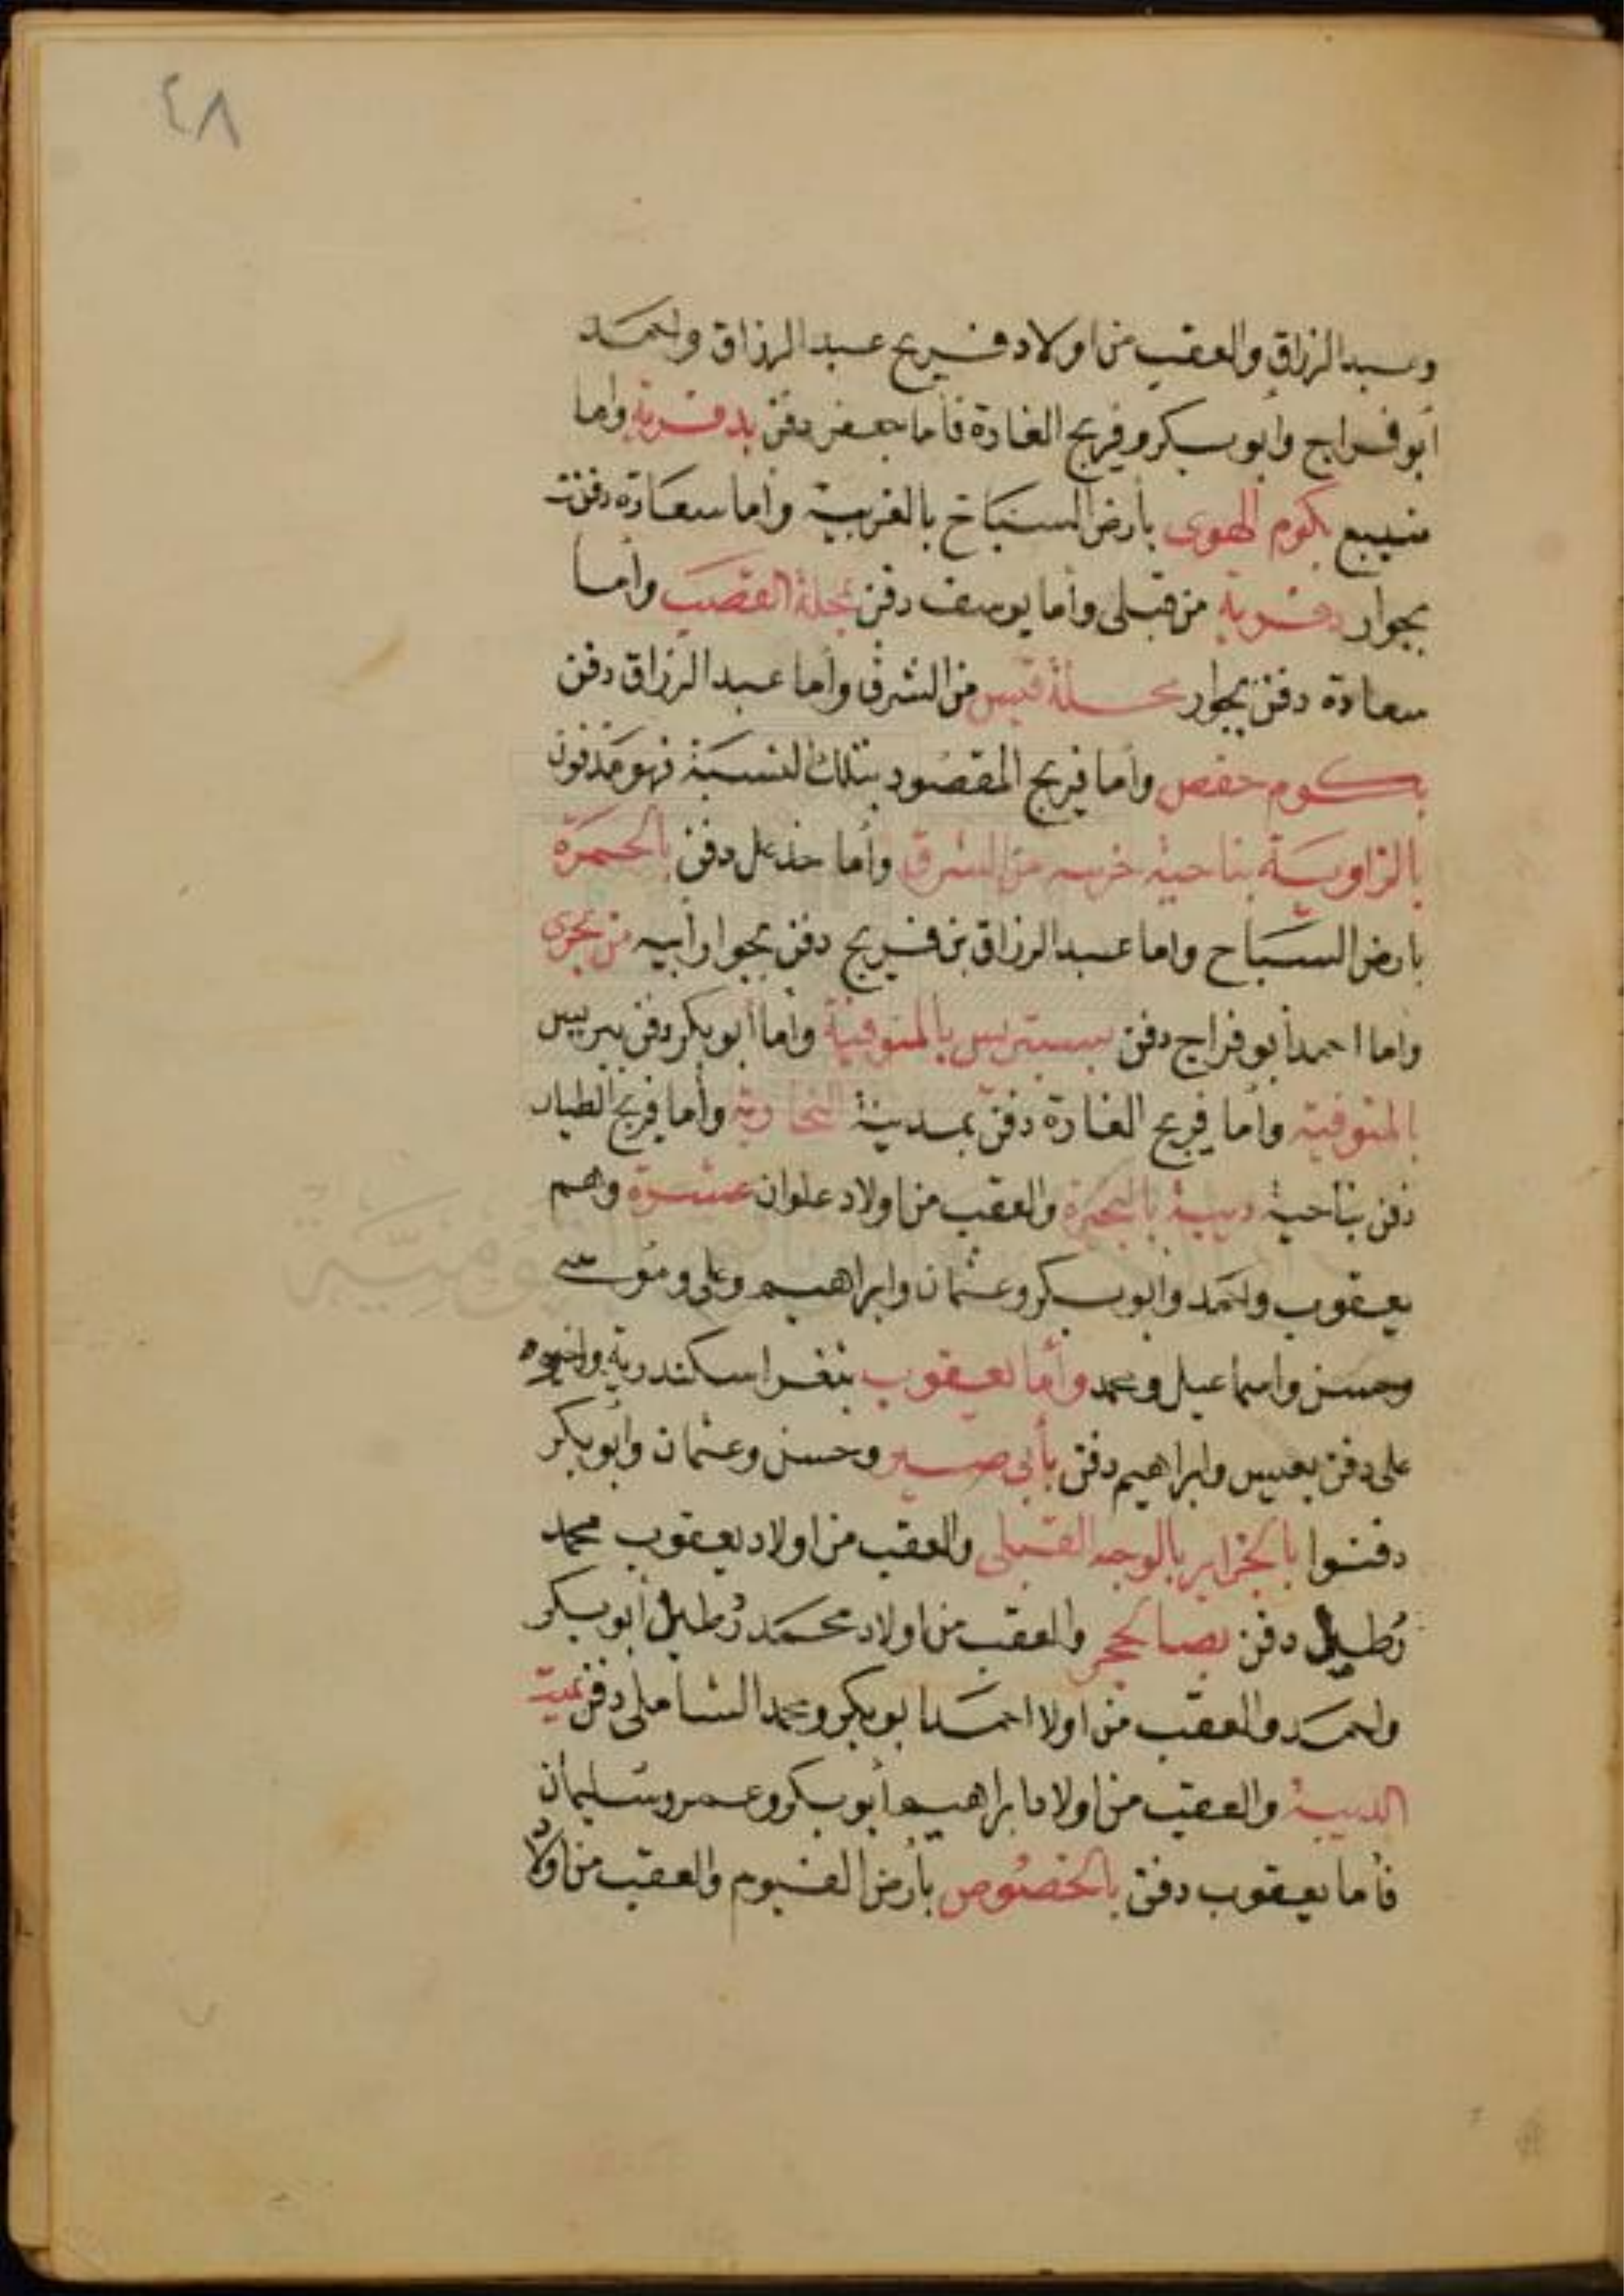 ٤٨
وعبد الرزاق والعقب من اولاد فريج عبد الرزاق واحمد
أبو فراج وأبو بكر وفريج الغارة فأما جعفر دفن بدقرية واما
منيبع بكوم الهوى بأرض السباخ بالغربية وأما سعادة دفنت
بجوار دقرية من قبلى وأما يوسف دفن بمحلة القصب وأما
سعادة دفن بجوار محلة قيس من الشرق وأما عبد الرزاق دفن
بكوم حفص وأما فريج المقصود بتلك النسبة فهو مدفون
بالزاوية بناحية خربة من الشرق وأما حذعل دفن بالحمرة
بارض السباح واما عبد الرزاق بن فريج دفن بجوار أبيه من بحرى
وأما احمد أبو فراج دفن بسبتريس بالمنوفية وأما أبو بكر دفن ببريس
بالمنوفية وأما فريج الغارة دفن بمدينة النحارية وأما فريج الطيار
دفن بناحية ديبة بالبحيرة والعقب من اولاد علوان عشرة وهم
يعقوب واحمد وأبو بكر وعثمان وابراهيم وعلى وموسى
وحسن واسماعيل ومحمد وأما يعقوب بثغر اسكندرية واخوه
على دفن بعبيس وابراهيم دفن بأبى صير وحسن وعثمان وأبو بكر
دفنوا بالجزاير بالوجه القبلى والعقب من اولاد يعقوب محمد
رطيل دفن بصا الحجر والعقب من اولاد محمد رطيل أبو بكر
واحمد والعقب من اولا احمد ابو بكر ومحمد الشاملى دفن بميت
الديبة والعقب من اولاد ابراهيم أبو بكر وعمر وسليمان
فأما يعقوب دفن بالخصوص بأرض الفيوم والعقب من اولاد